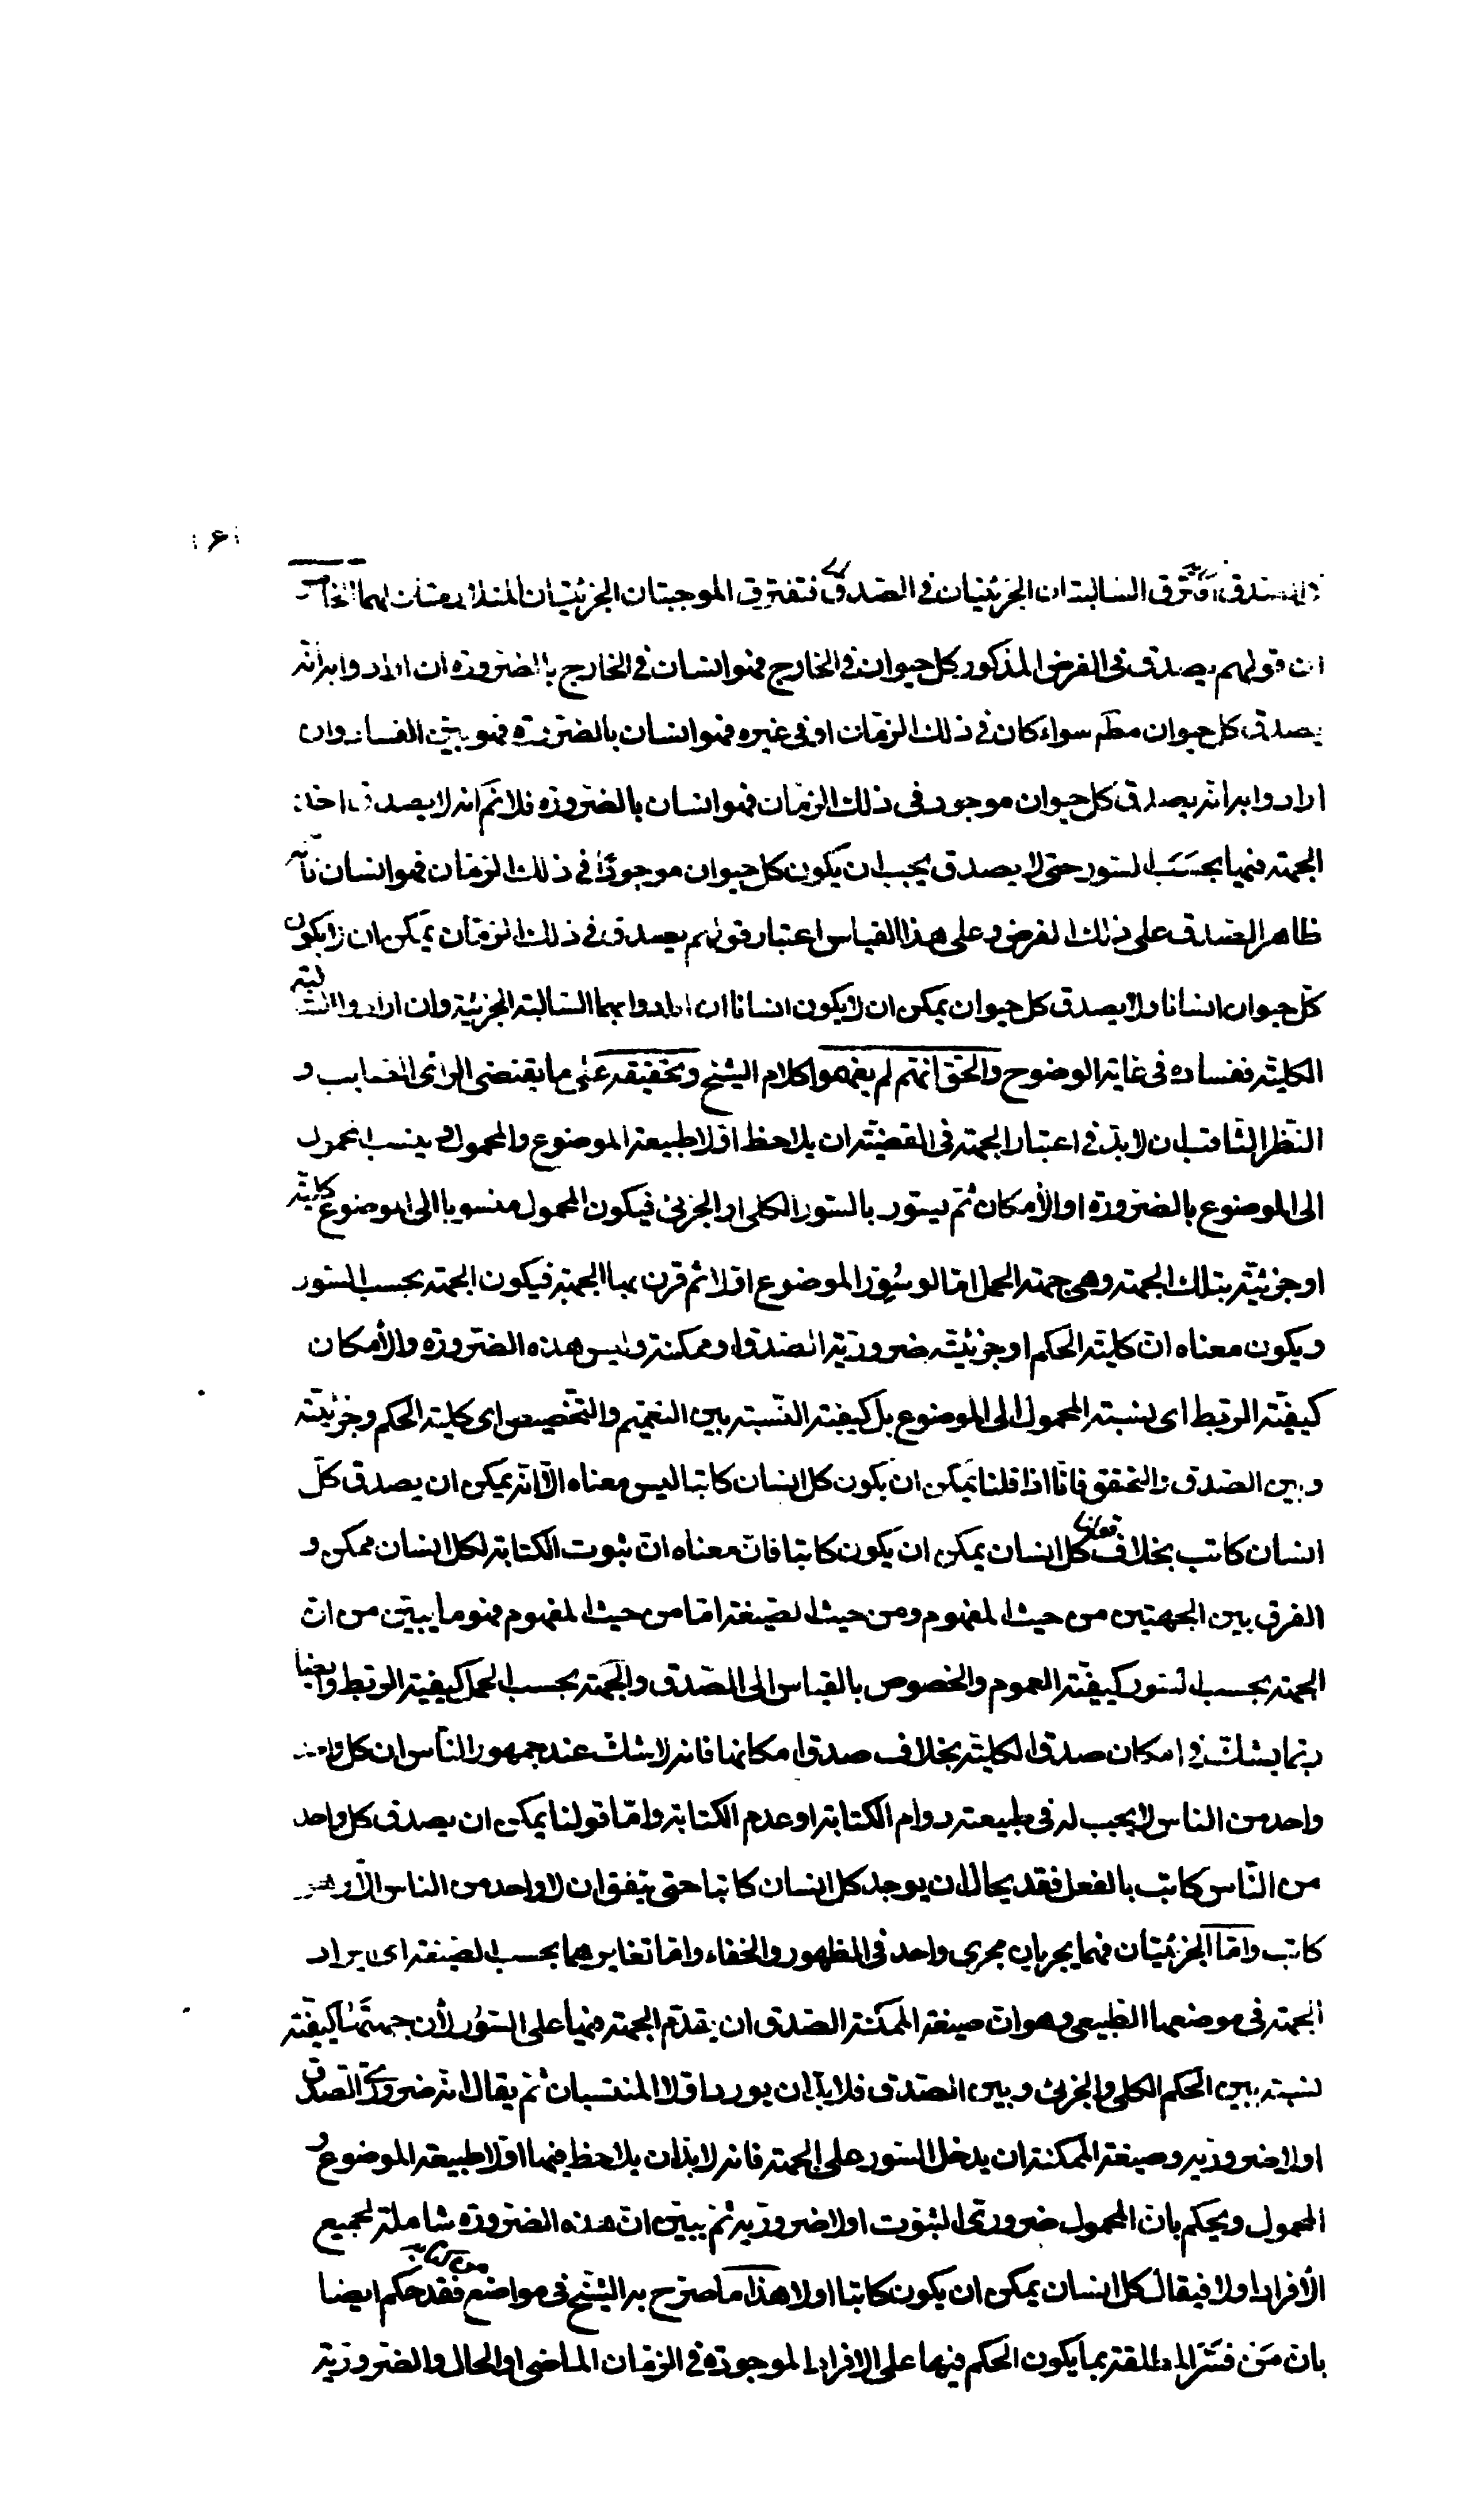 افترق السالبتان الجزئيتان فى الصدق فتفترق الموجبتان الجزئيتان المتلازمتان لهما
ان قولهم يصدق فى الفرض المذكور كل حيوان فى الخارج فهو انسان فى الخارج بالضرورة ان ارادوا به انه
يصدق كل حيوان مط سواء كان فى ذلك الزمان او فى غيره فهو انسان بالضرورة فهو بين الفساد وان
ارادوا به انه يصدق كل حيوان موجود فى ذلك الزمان فهو انسان بالضرورة فلانم انه لا يصدق اخذ
الجهة فيها بحسب السور حتى لا يصدق يجب ان يكون كل حيوان موجودا فى ذلك الزمان فهو انسان
ظاهر الصدق على ذلك الفرض وعلى هذا القياس اعتبار قولهم يصدق فى ذلك الزمان يمكن ان لا يكون
كل حيوان انسانا ولا يصدق كل حيوان يمكن ان لا يكون انسانا ان ارادوا بهما السالبة الجزئية وان ارادوا السالبة
الكلية ففساده فى غاية الوضوح والحق انهم لم يفهموا كلام الشيخ وتحقيقه على ما يقتضى الراى الصايب و
النظر الثاقب ان لا بد فى اعتبار الجهة فى القضية ان يلاحظ اولا طبيعة الموضوع والمحمول وينسب المحمول
الى الموضوع بالضرورة او الأمكان ثم يسور بالسور الكلى او الجزئى فيكون المحمول منسوبا الى الموضوع كلية
او جزئية بتلك الجهة وهى جهة الحمل اما لو سُوّر الموضوع اولا ثم قرن بها الجهة فيكون الجهة بحسب السور
ويكون معناه ان كلية الحكم او جزئيته ضرورية الصدق او ممكنة وليس هذه الضرورة والأمكان
كيفية الربط اى لنسبة المحمول الى الموضوع بل كيفية النسبة بين التعميم والتخصيص اى كلية الحكم وجزئيته
وبين الصدق والتحقق فانا اذا قلنا يمكن ان يكون كل انسان كاتبا ليس معناه الا انه يمكن ان يصدق كل
انسان كاتب بخلاف قولنا كل انسان يمكن ان يكون كاتبا فان معناه ان ثبوت الكتابة لكل انسان ممكن و
الفرق بين الجهتين من حيث المفهوم ومن حيث الصيغة اما من حيث المفهوم فهو ما يبين من ان
الجهة بحسب السور كيفية العموم والخصوص بالقياس الى الصدق والجهة بحسب الحمل كيفية الربط وايضا
ربما يشك فى امكان صدق الكلية بخلاف صدق امكانها فانه لا شك عند جمهور الناس ان كل واحد
واحد من الناس لا يجب له فى طبيعته دوام الكتابة او عدم الكتابة واما قولنا يمكن ان يصدق كل واحد
من الناس كاتب بالفعل فقد يحال ان يوجد كل انسان كاتبا حتى يتفق ان لا واحد من الناس الا وهو
كاتب واما الجزئيتان فهما يجريان مجرى واحد فى الظهور والخفاء واما تغايرهما بحسب الصيغة اى ايراد
الجهة فى موضعها الطبيعى وهو ان صيغة الممكنة الصدق ان يقدم الجهة فيها على السور لأن جهتها كيفية
لنسبته بين الحكم الكلى والجزئى وبين الصدق فلا بد ان يورد اولا المنتسبان ثم يقال انه ضرورى الصدق
اولا ضروريه وصيغة الممكنة ان يدخل السور على الجهة فانه لا بد ان يلاحظ فيها اولا طبيعة الموضوع و
المحمول ويحكم بان المحمول ضرورى الثبوت اولا ضروريه ثم يبين ان هذه الضرورة شاملة لجميع
الأفراد اولا فيقال كل انسان يمكن ان يكون كاتبا اولا هذا ما صرح به الشيخ فى مواضع من كتابه فقد حكم ايضا
بان من فسّر المطلقة بما يكون الحكم فيها على الافراد الموجودة فى الزمان الماضى او الحال والضرورية